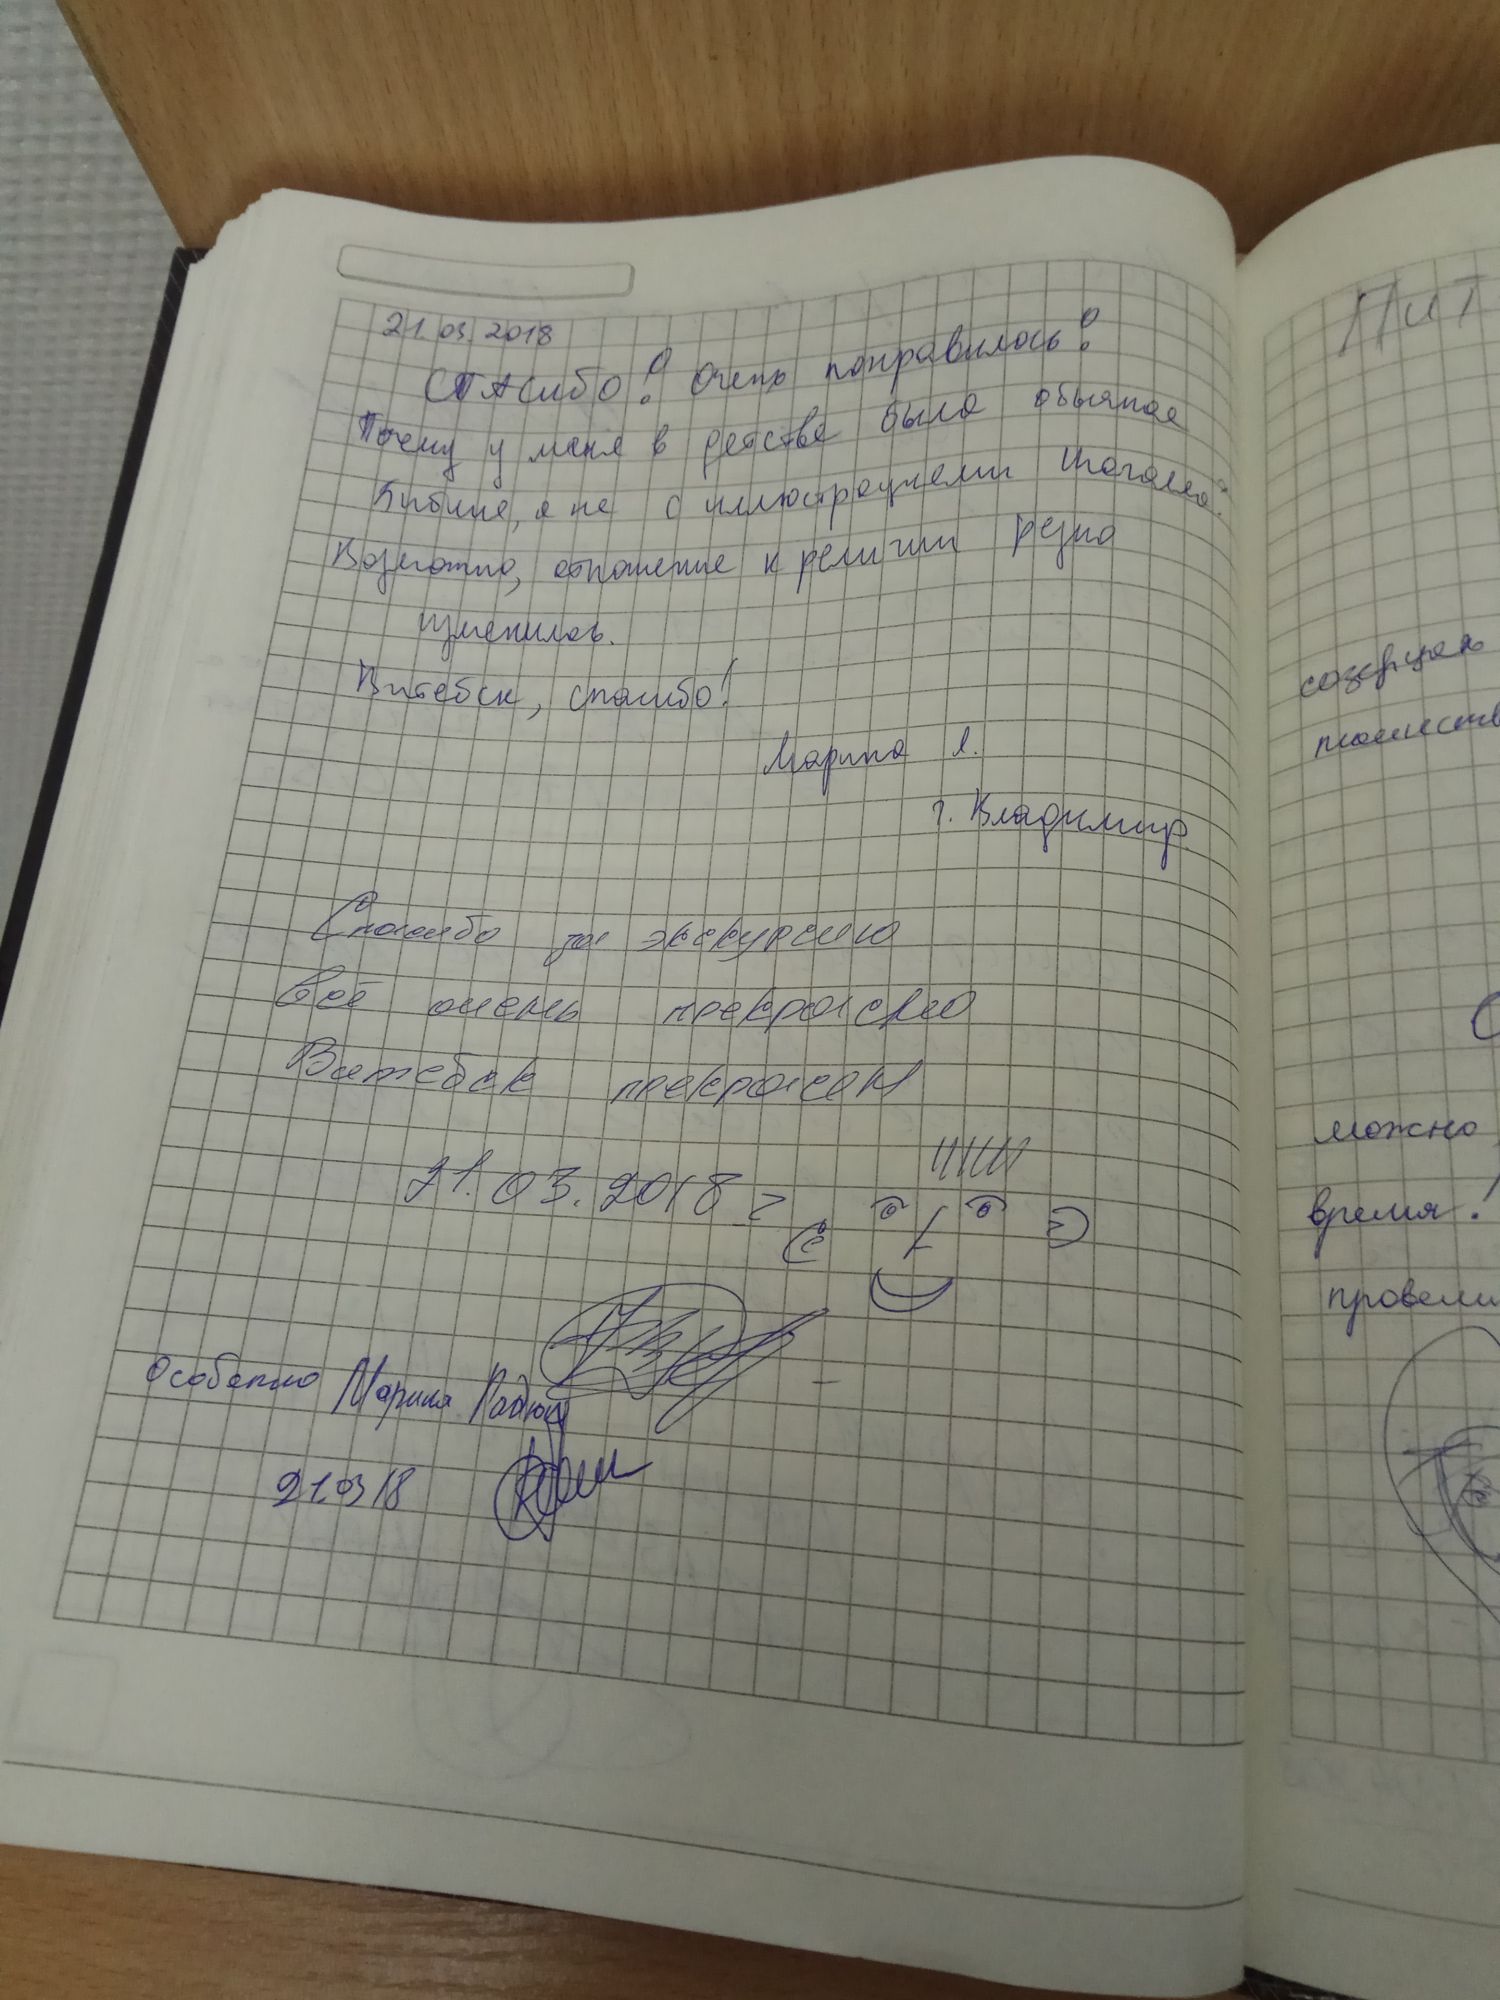 21.03.2018
СПАСИБО! Очень понравилось!
Почему у меня в детстве была обычная
Библия, а не с иллюстрациями Шагала?
Возможно, отношение к религии резко
изменилось.
Витебск, спасибо!
Марина Я.
г. Владимир.
Спасибо за экскурсию
Всё очень прекрасно
Витебск прекрасен
21.03.2018 г
Особенно Марина
21.03 18
Пит
созерцая
можно
время!
провели